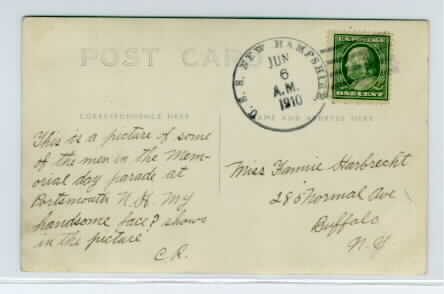 POST CARD
U. S. S. NEW HAMPSHIRE
JUN
6
A.M.
1910
ONE CENT
CORRESPONDENCE HERE
NAME AND ADDRESS HERE
This is a picture of some
of the men in the Mem-
orial day parade at
Portsmouth N. H. My
handsome face? shows
in the picture
C.R.
Miss Fannie Harbrecht
280 Normal Ave
Buffalo
N. Y